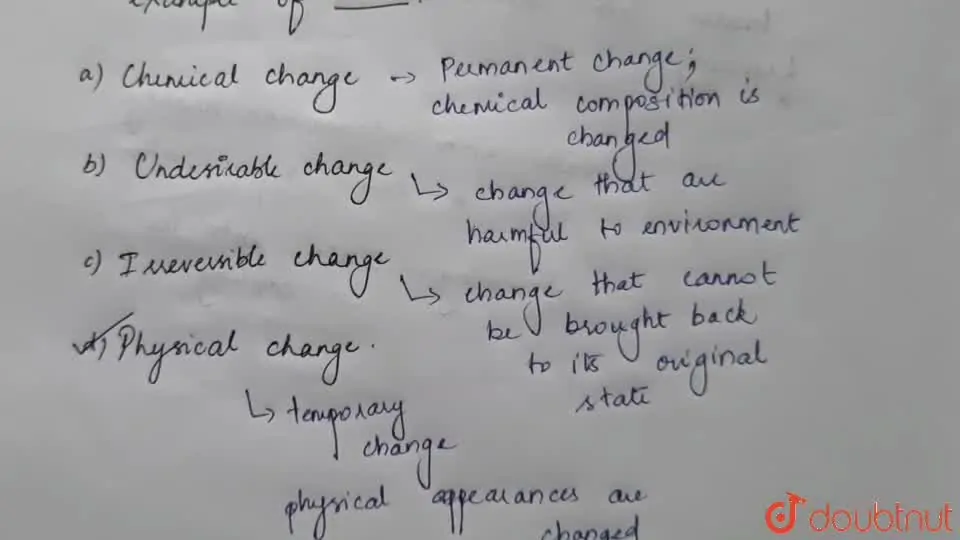 example of ____.
a) Chemical change → Permanent change;
chemical composition is
changed
b) Undesirable change
↳ change that are
harmful to environment
c) Irreversible change
↳ change that cannot
be brought back
to its original
state
d) Physical change.
↳ temporary
change
physical appearances are
changed
doubtnut